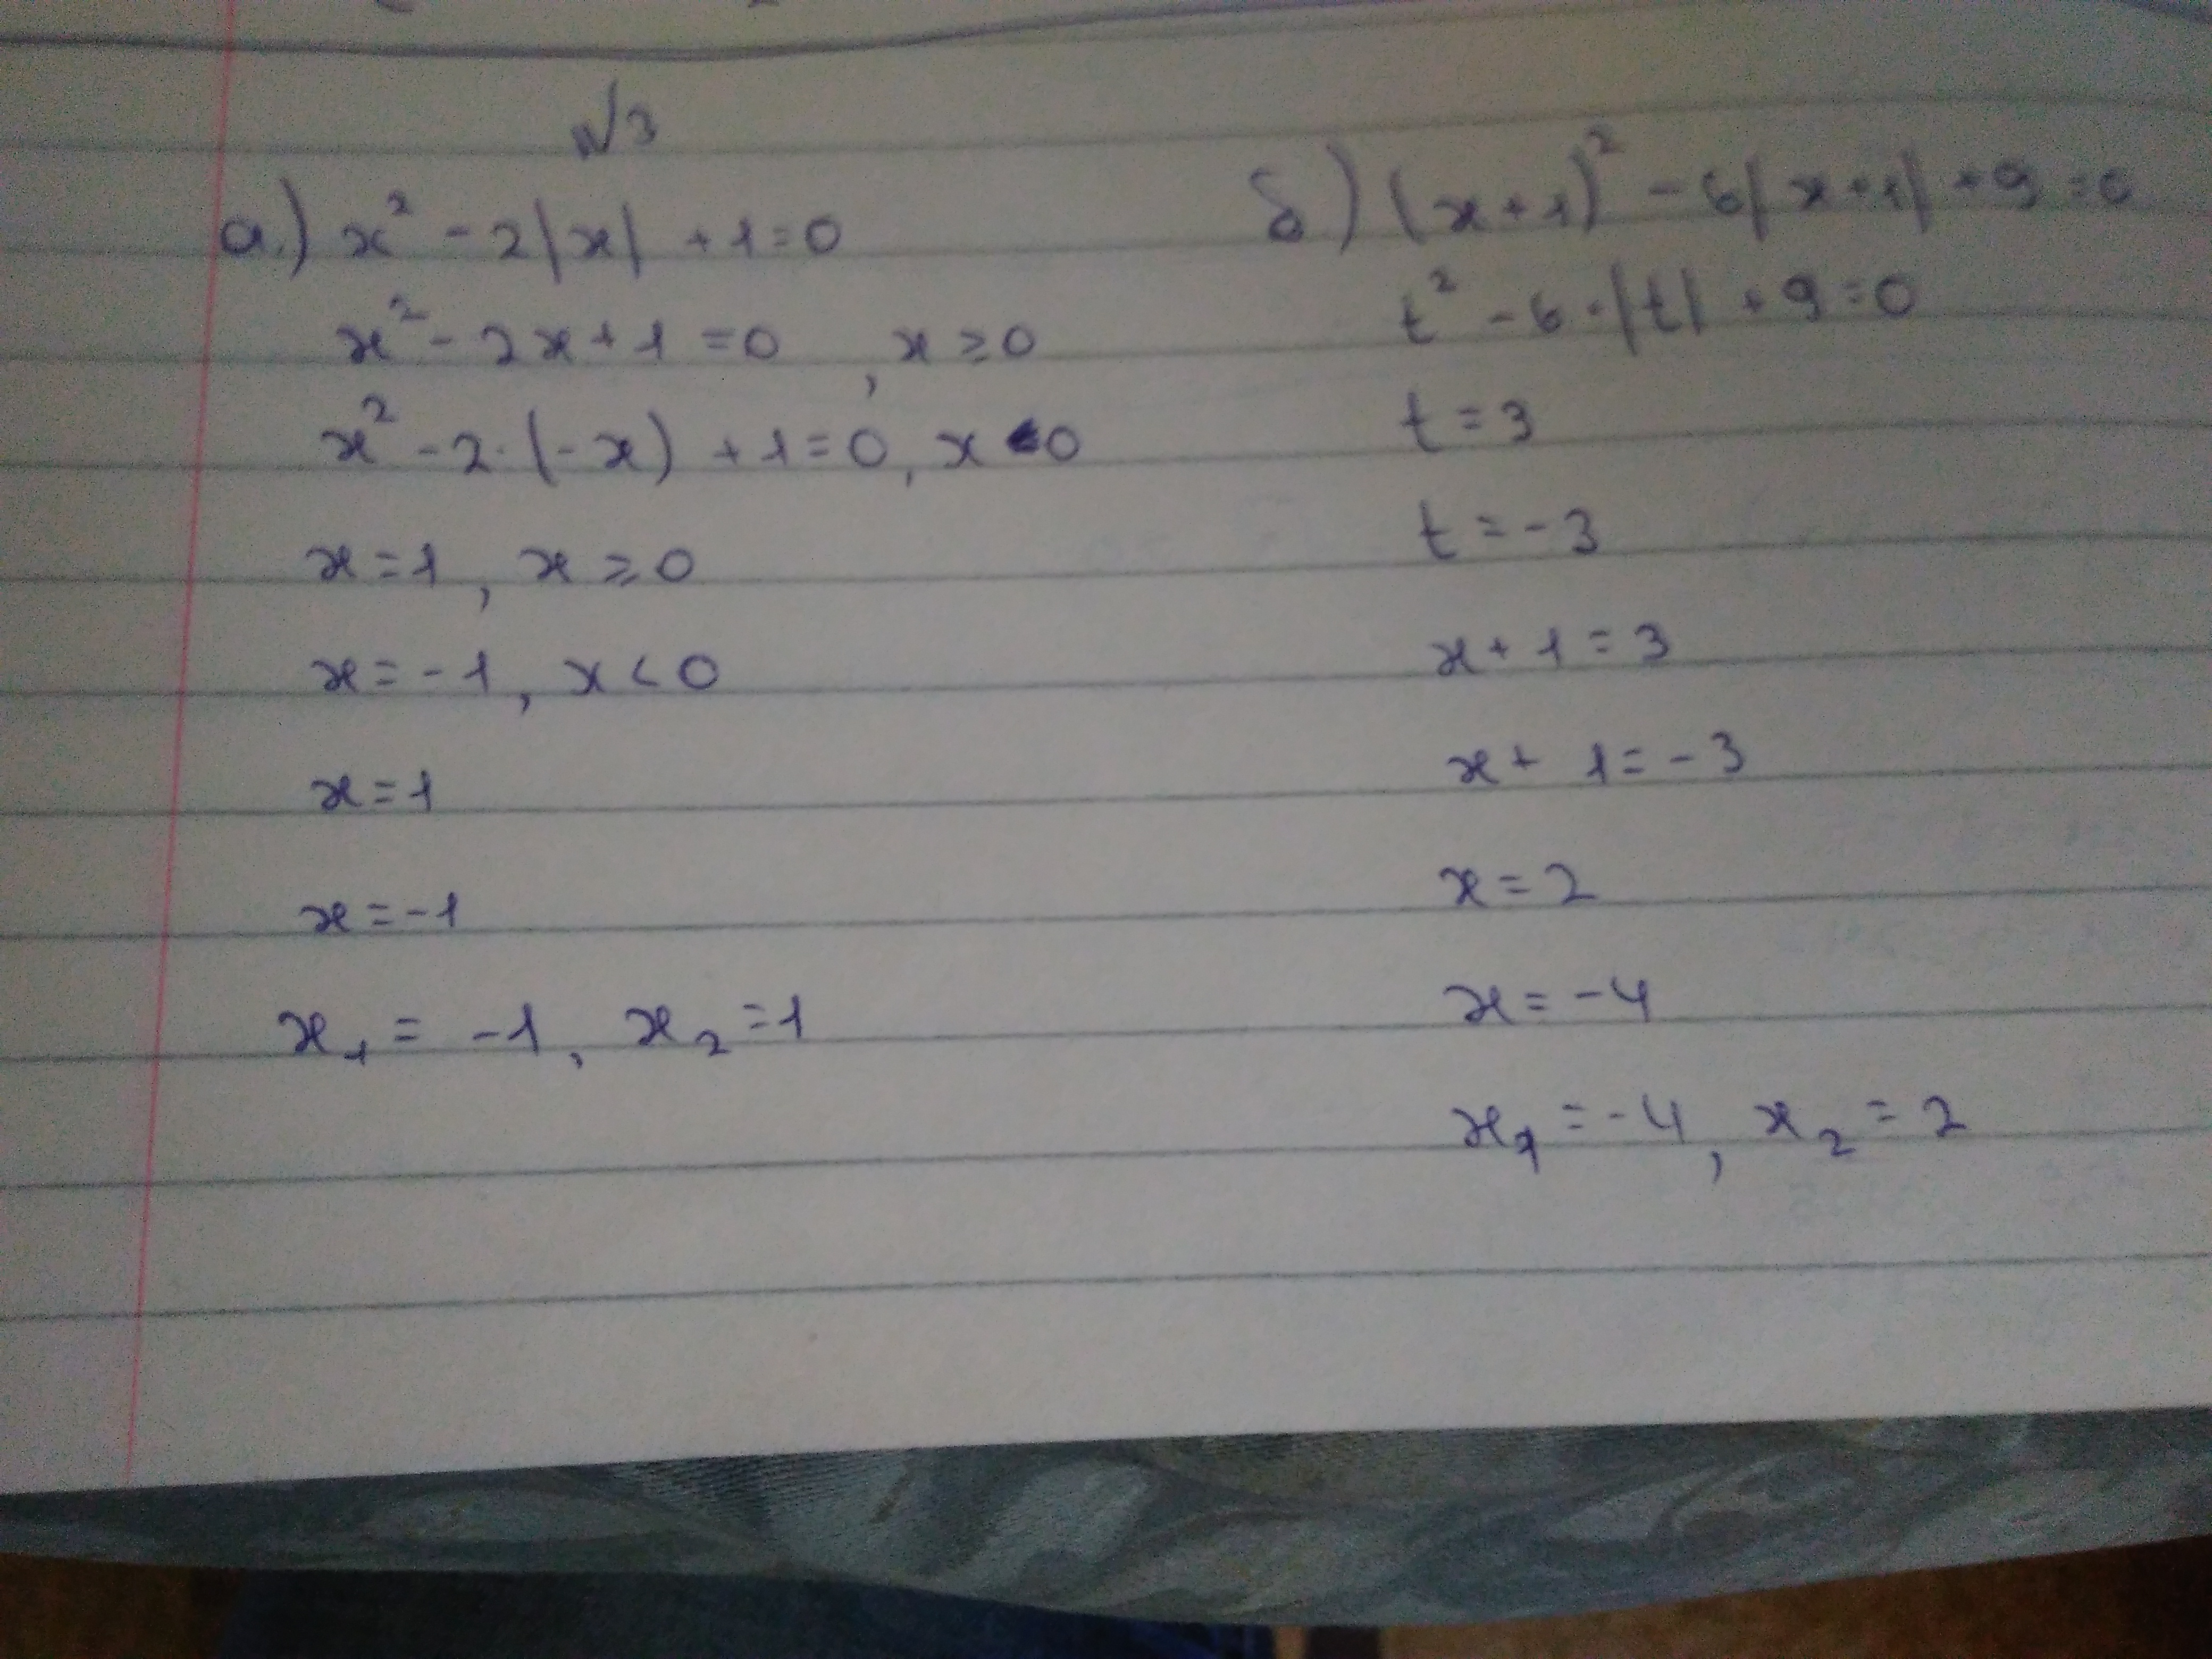 №3
а.) x² - 2|x| + 1 = 0
x² - 2x + 1 = 0, x ≥ 0
x² - 2·(-x) + 1 = 0, x < 0
x = 1, x ≥ 0
x = -1, x < 0
x = 1
x = -1
x₁ = -1, x₂ = 1
б) (x+1)² - 6|x+1| + 9 = 0
t² - 6·|t| + 9 = 0
t = 3
t = -3
x + 1 = 3
x + 1 = -3
x = 2
x = -4
x₁ = -4, x₂ = 2